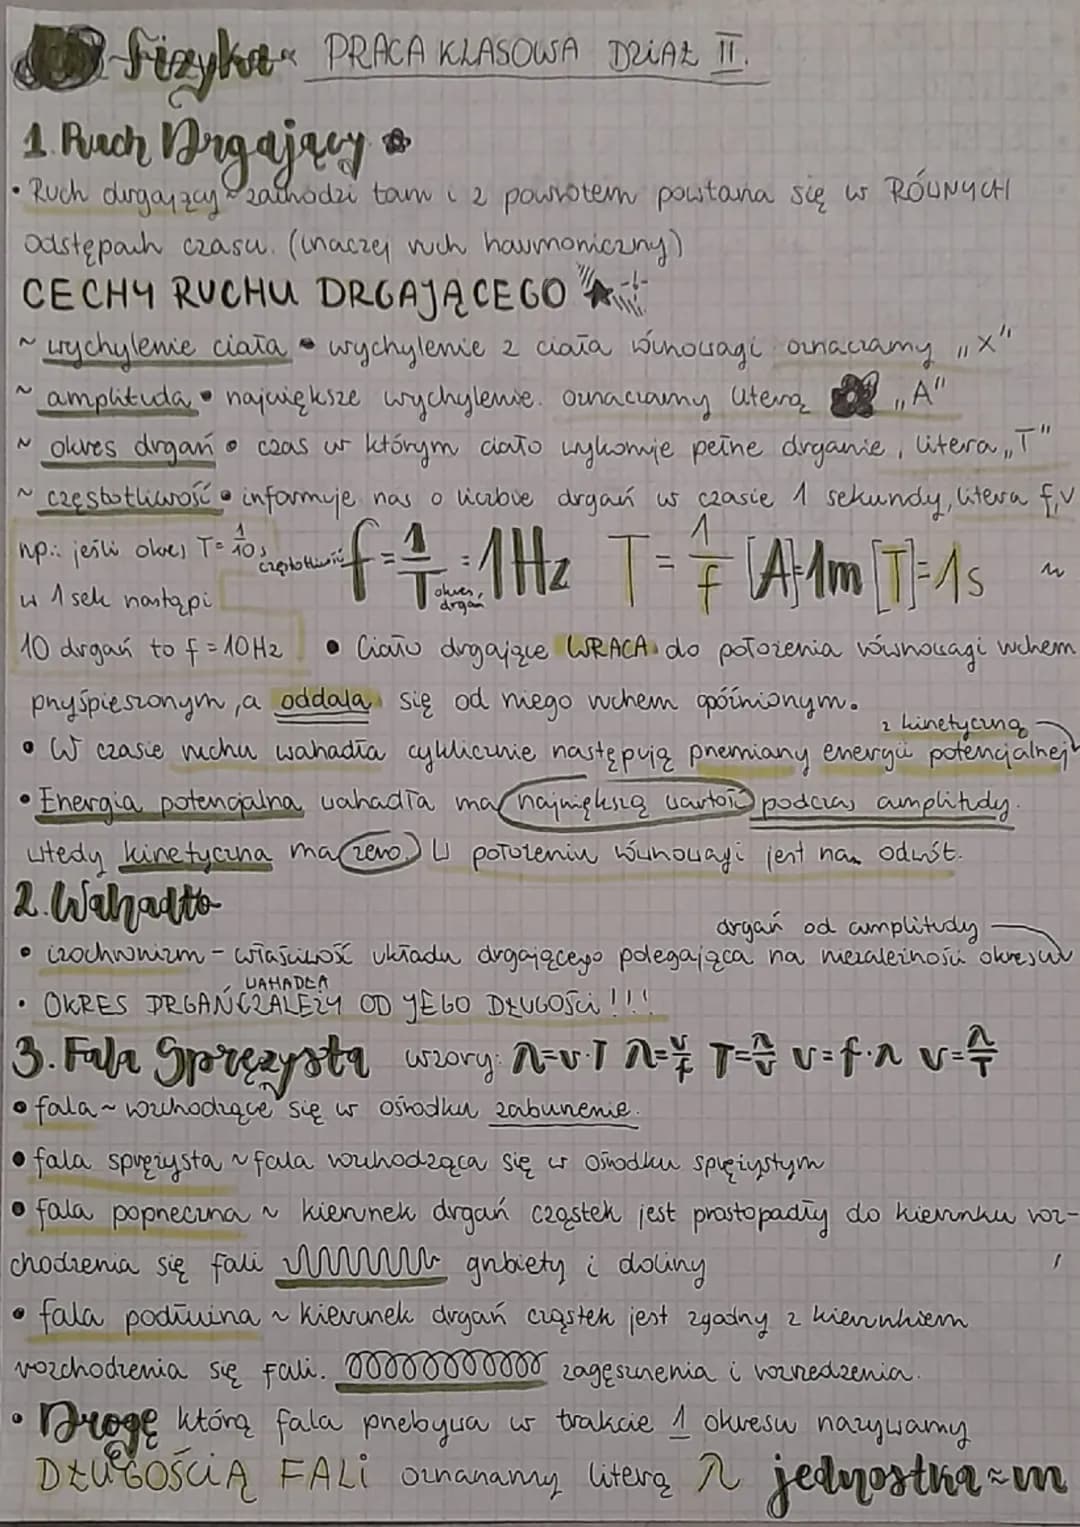 Fizyka PRACA KLASOWA DZIAŁ II.
1. Ruch Drgający
• Ruch drgający ~ zachodzi tam i z powrotem powtarza się w RÓWNYCH
odstępach czasu. (inaczej ruch harmoniczny)
CECHY RUCHU DRGAJĄCEGO
~ wychylenie ciała • wychylenie z ciała równowagi oznaczamy „x"
~ amplituda • największe wychylenie. oznaczamy literą „A"
~ okres drgań • czas w którym ciało wykonuje pełne drganie, litera „T"
~ częstotliwość • informuje nas o liczbie drgań w czasie 1 sekundy, litera f,v
np.: jeśli okres T = 1/10 s
w 1 sek nastąpi
10 drgań to f = 10Hz
częstotliwość f = 1/T okres drgań = 1Hz T = 1/f [A]=1m [T]=1s
• Ciało drgające WRACA do położenia równowagi ruchem
przyśpieszonym, a oddala się od niego ruchem opóźnionym.
• W czasie ruchu wahadła cyklicznie następują przemiany energii potencjalnej
z kinetyczną
• Energia potencjalna wahadła ma największą wartość podczas amplitudy.
wtedy kinetyczna ma zero. W położeniu równowagi jest na odwrót.
2. Wahadło
• izochronizm - właściwość układu drgającego polegająca na niezależności okresu
drgań od amplitudy
• OKRES DRGAŃ WAHADŁA ZALEŻY OD JEGO DŁUGOŚCi !!!
3. Fala Sprężysta wzory: λ=v·T λ=v/f T=λ/v v=f·λ v=λ/T
• fala ~ rozchodzące się w ośrodku zaburzenie.
• fala sprężysta ~ fala rozchodząca się w ośrodku sprężystym
• fala poprzeczna ~ kierunek drgań cząstek jest prostopadły do kierunku roz-
chodzenia się fali grzbiety i doliny
• fala podłużna ~ kierunek drgań cząstek jest zgodny z kierunkiem
rozchodzenia się fali. zagęszczenia i rozrzedzenia.
• Drogę którą fala przebywa w trakcie 1 okresu nazywamy
DŁUGOŚCIĄ FALi oznaczamy literą λ jednostka ~ m